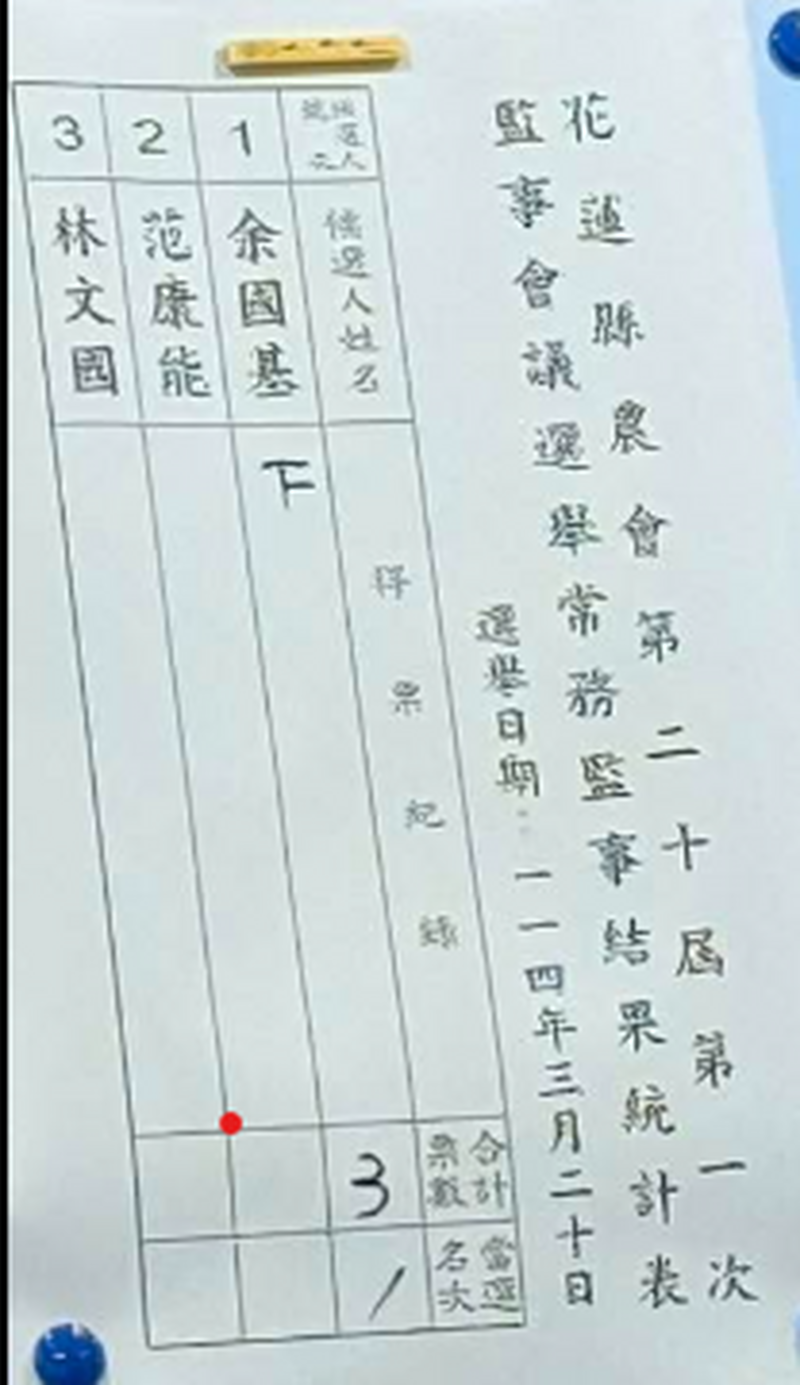 花蓮縣農會第二十屆第一次
監事會議選舉常務監事結果統計表
選舉日期：一一四年三月二十日
候選人號次 1 2 3
候選人姓名 余國基 范康能 林文國
得票紀錄 下
合計票數 3
當選名次 1